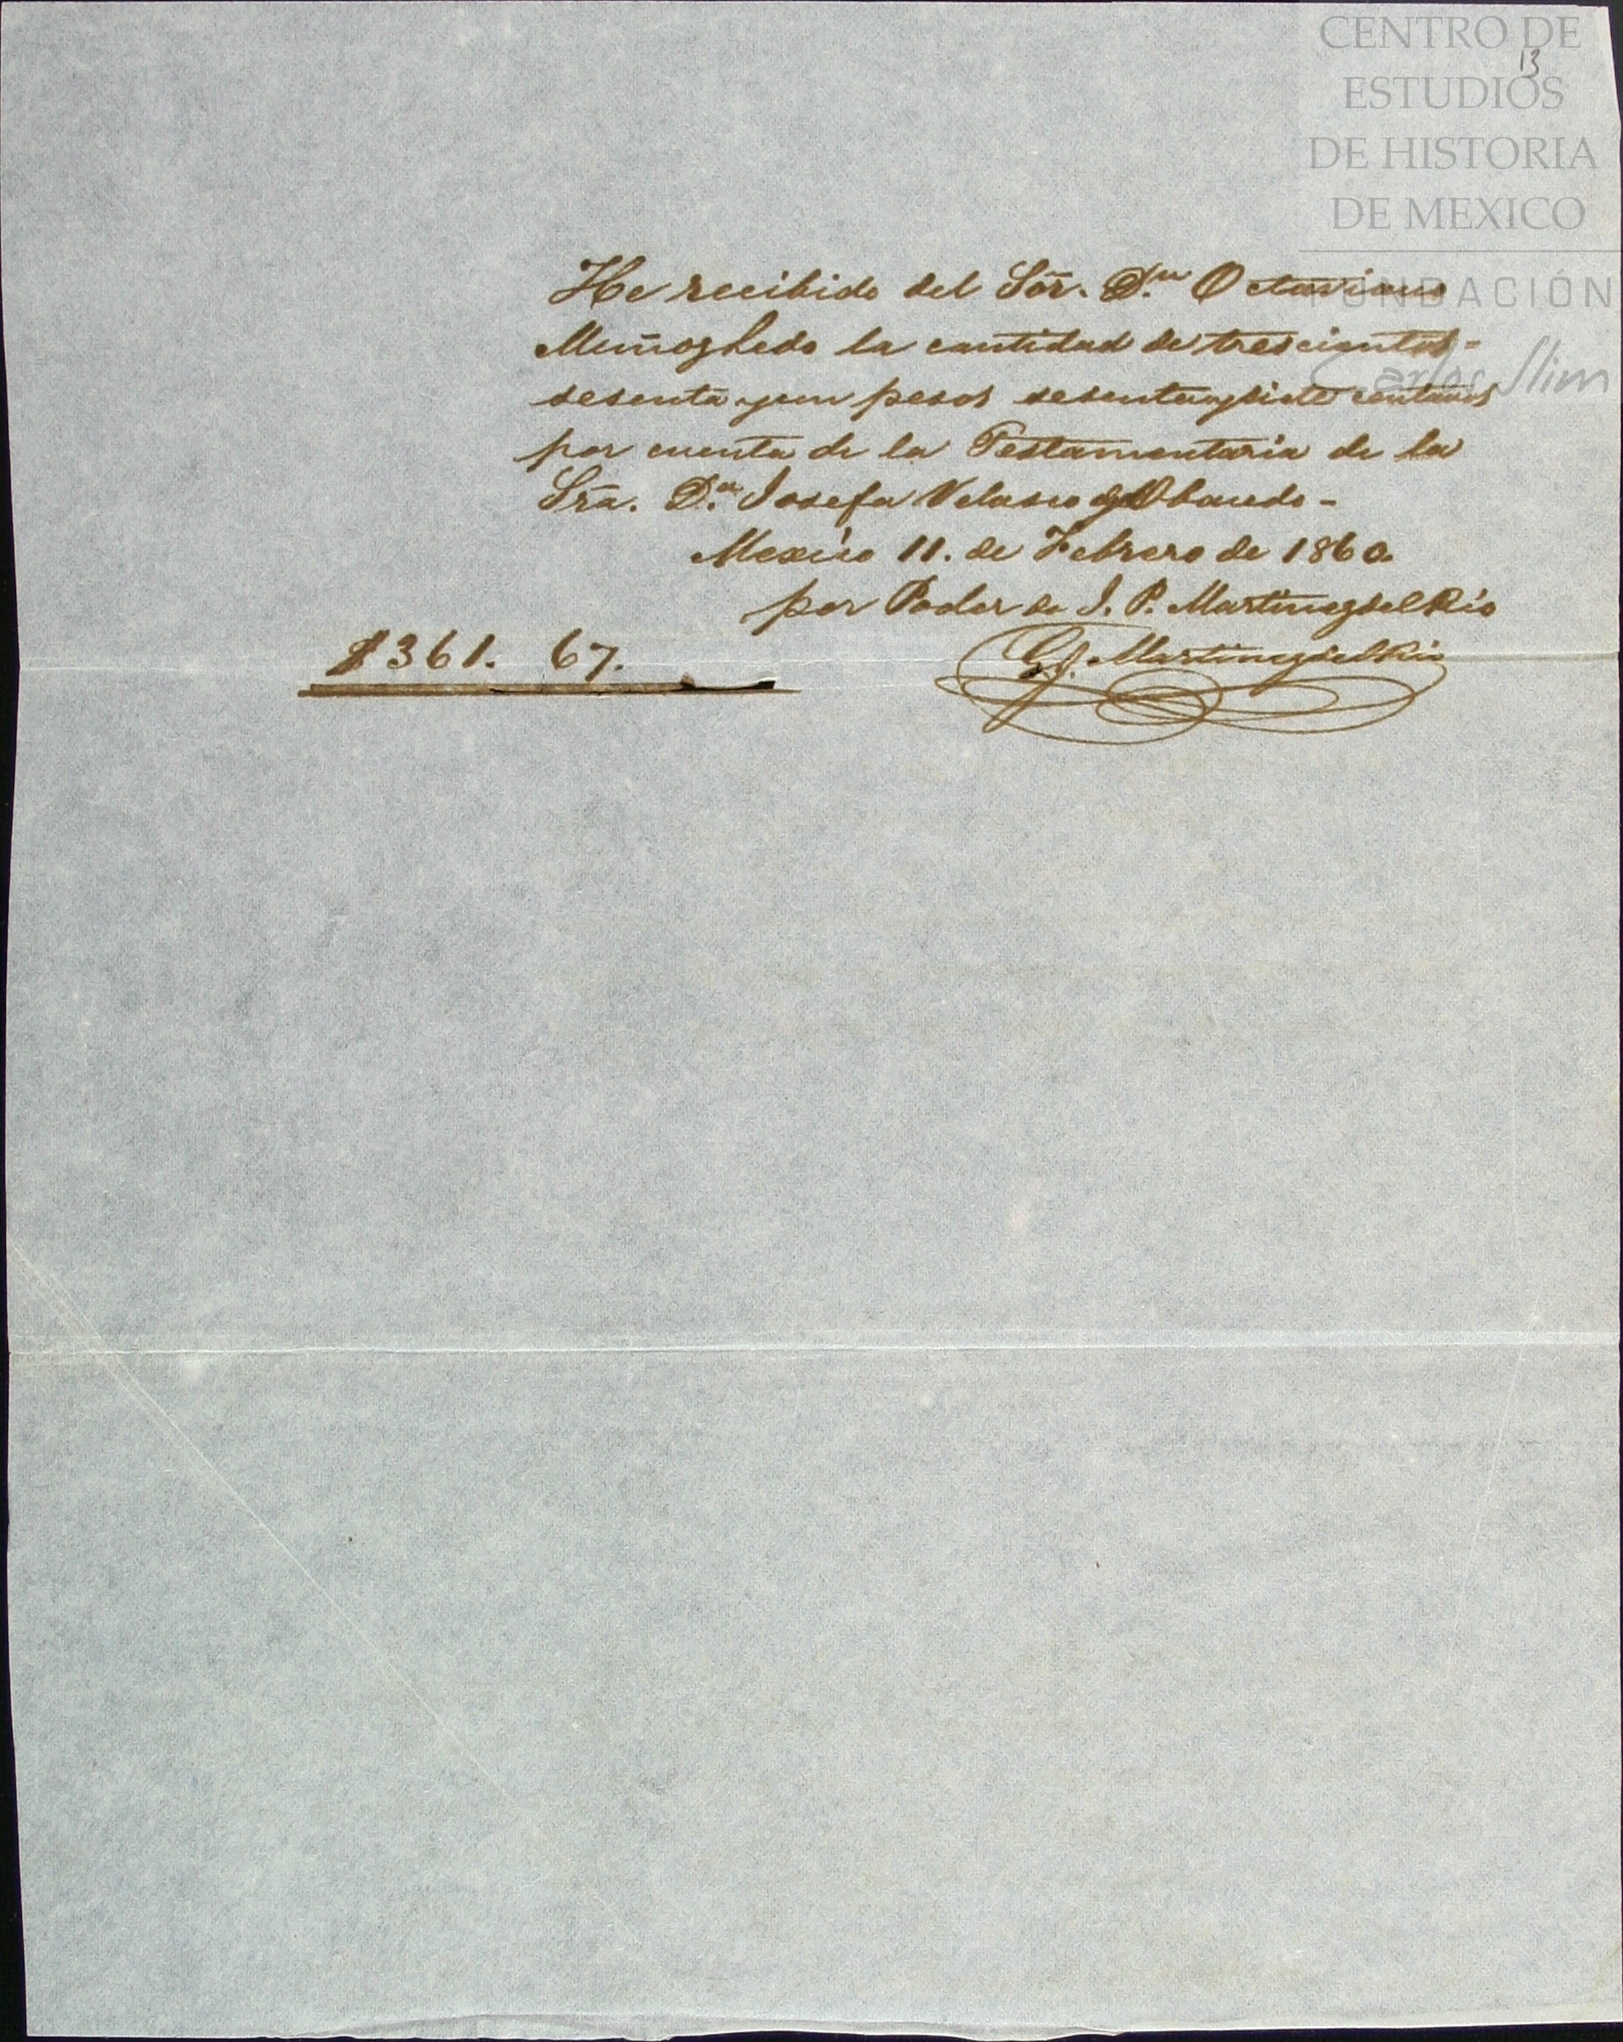 CENTRO DE
13
ESTUDIOS
DE HISTORIA
DE MEXICO
FUNDACIÓN
Carlos Slim
He recibido del Sõr. D.n Octaviano
Muñozledo la cantidad de trescientos-
sesenta yun pesos sesentaysiete centavos
por cuenta de la Testamentaria de la
Srã. D.a Josefa Velasco de Obando-
Mexico 11. de Febrero de 1860
por Poder de J. P. Martinezdelrio
$361. 67.
G. J. Martinezdelrio